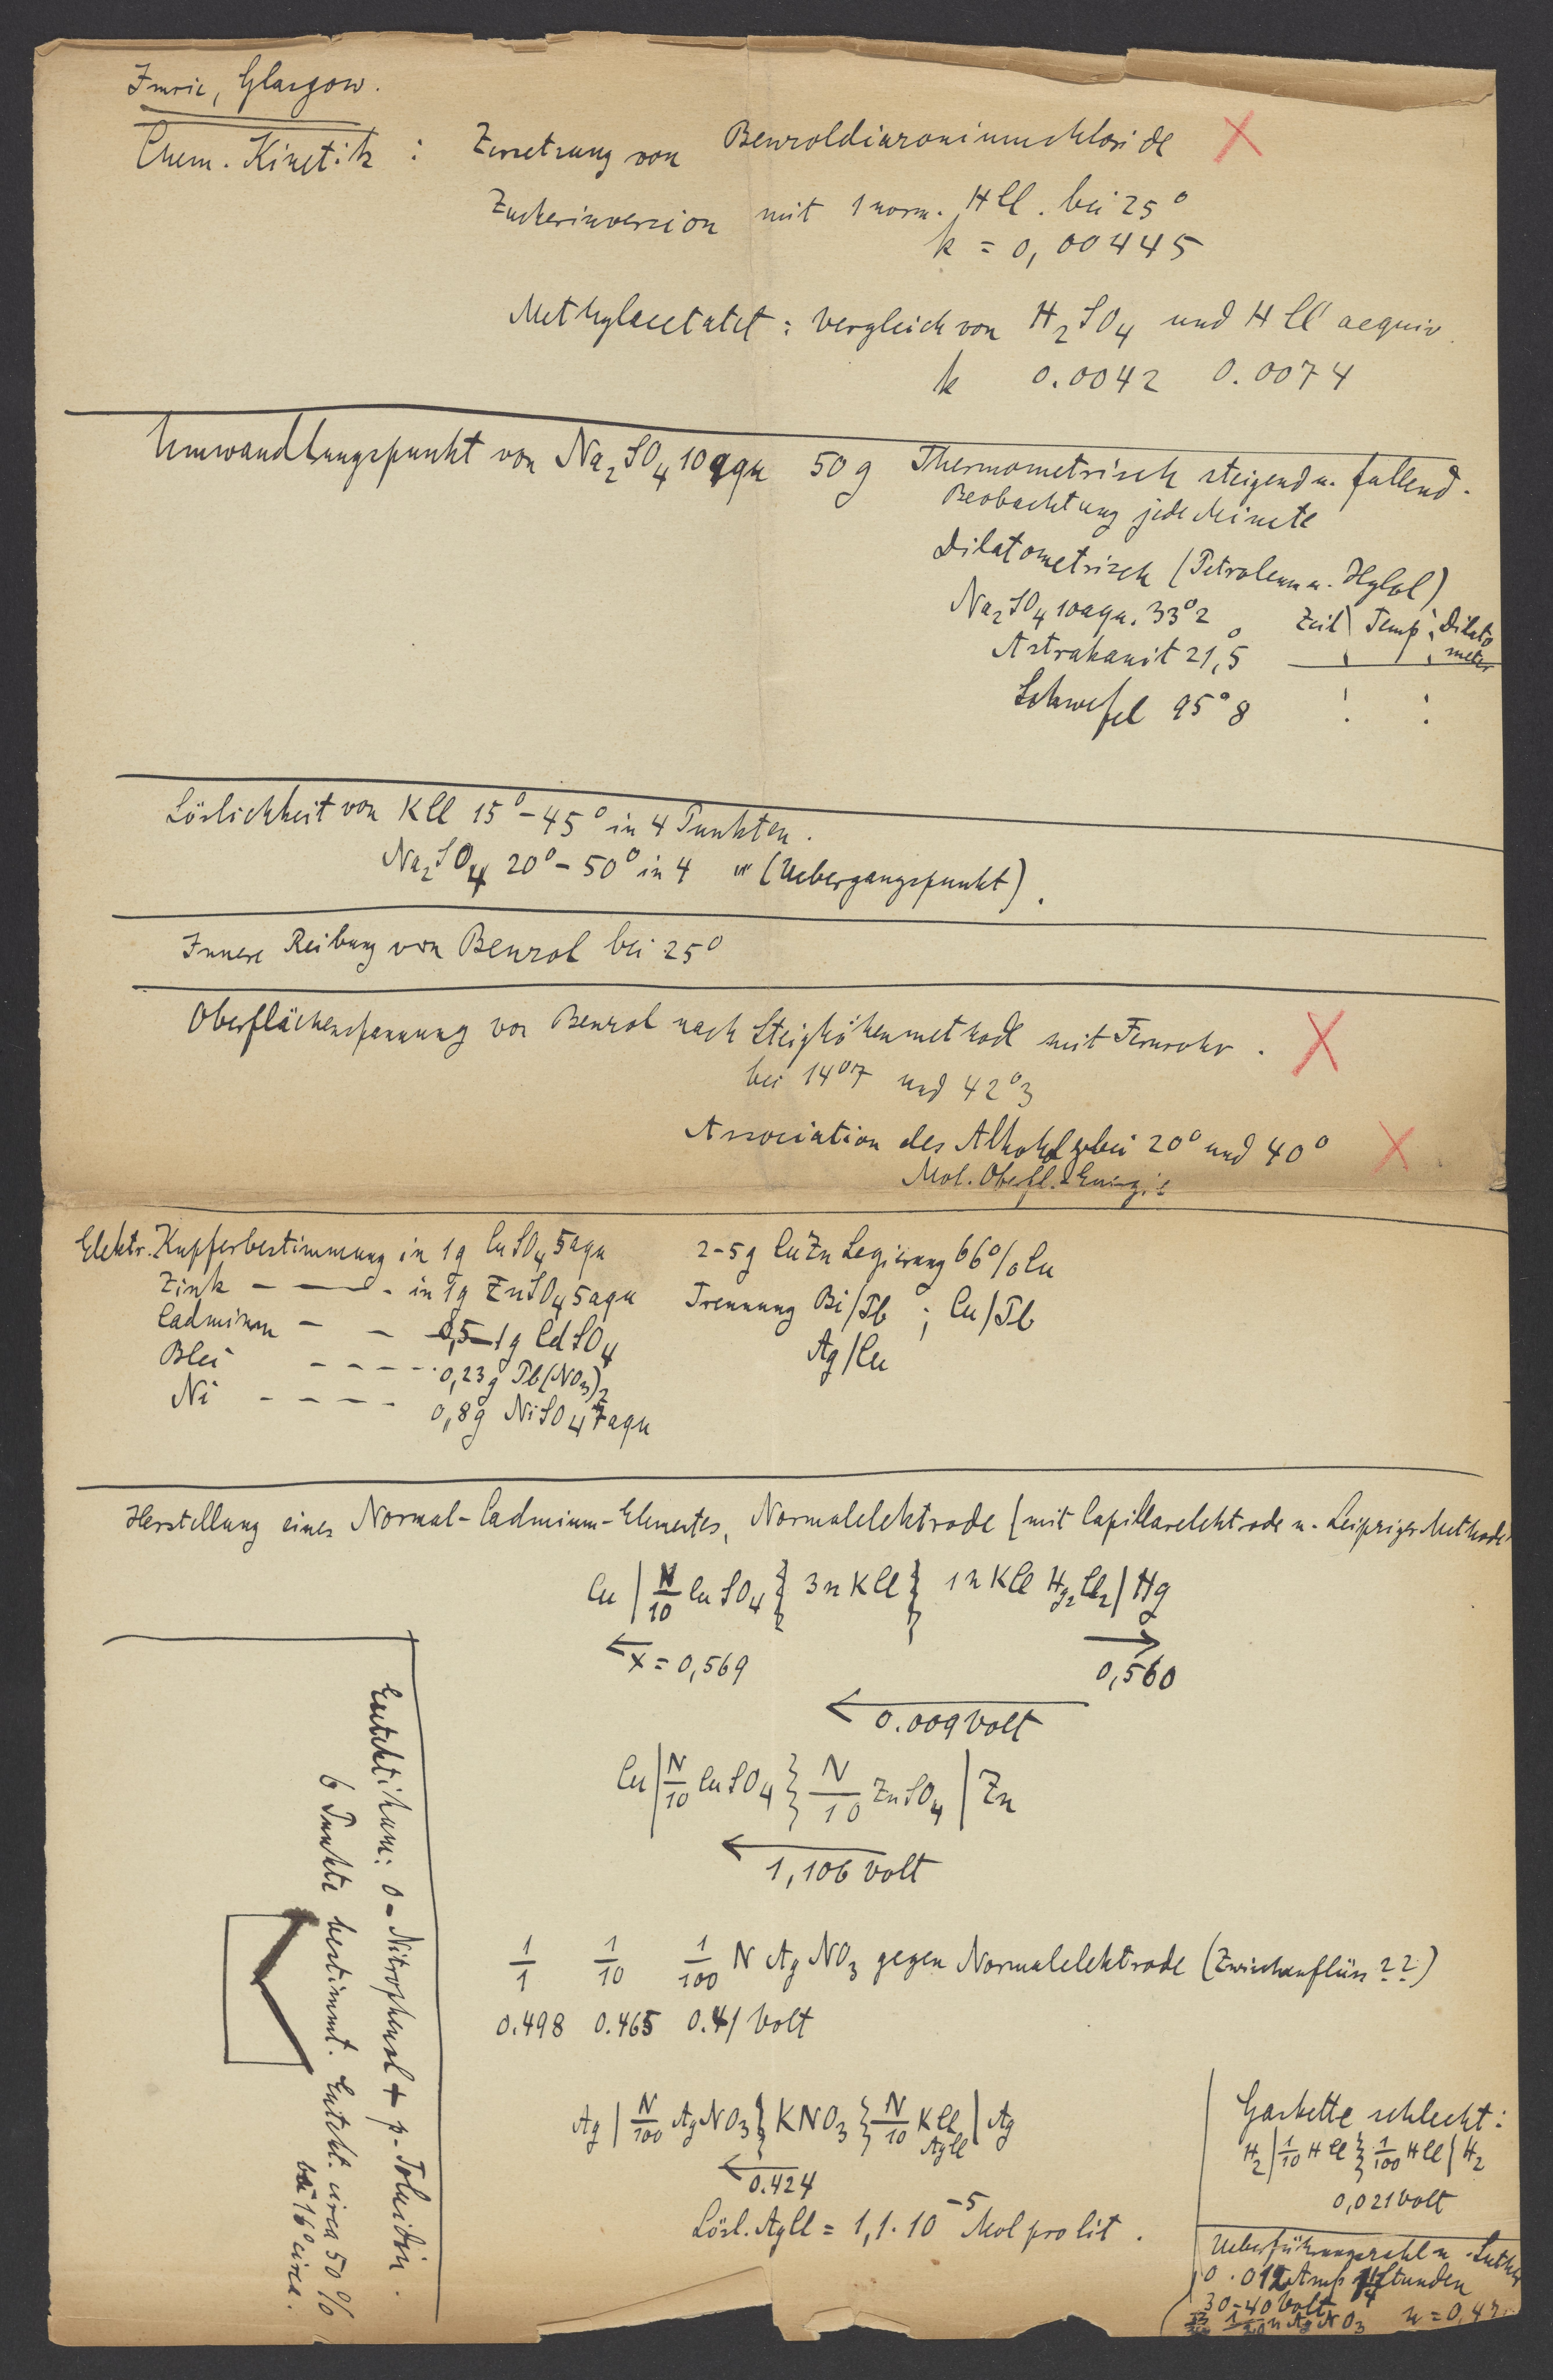 Imrie, Glasgow.
Chem. Kinetik : Zersetzung von Benzoldiazoniumchloride
Zuckerinversion mit 1 norm. HCl. bei 25°
k = 0,00445
Methylacetatet : Vergleich von H₂SO₄ und HCl aequiv.
k 0.0042 0.0074
Umwandlungspunkt von Na₂SO₄ 10 aqu 50 g Thermometrisch steigend u. fallend.
Beobachtung jede Minute
Dilatometrisch (Petroleum u. Xylol)
Na₂SO₄ 10 aqu. 33°2 Zeit Temp Dilato
meter
Astrakanit 21,5°
Schwefel 95°8
Löslichkeit von KCl 15° - 45° in 4 Punkten.
Na₂SO₄ 20° - 50° in 4 " (Uebergangspunkt).
Innere Reibung von Benzol bei 25°
Oberflächenspannung von Benzol nach Steighöhenmethode mit Fernrohr.
bei 14°7 und 42°3
Association des Alkohols bei 20° und 40°
Mol. Oberfl. Energie
Elektr. Kupferbestimmung in 1g CuSO₄ 5aqu 2-5g CuZn Legierung 66% Cu
Zink - — - in 1g ZnSO₄ 5aqu Trennung Bi/Pb ; Cu/Pb
Cadmium - - 0,5-1g CdSO₄ Ag/Cu
Blei - - - - 0,23g Pb(NO₃)₂
Ni - - - - 0,8g NiSO₄ 7aqu
Herstellung eines Normal-Cadmium-Elementes, Normalelektrode (mit Capillarelektrode u. Leipziger Methode
Cu | N/10 CuSO₄ } 3n KCl } 1n KCl Hg₂Cl₂ | Hg
← x = 0,569 → 0,560
← 0.009 Volt
Cu | N/10 CuSO₄ } N/10 ZnSO₄ | Zn
← 1,106 Volt
1/1 1/10 1/100 N AgNO₃ gegen Normalelektrode (Zwischenflüss ??)
0.498 0.465 0.41 Volt
Ag | N/100 AgNO₃ } KNO₃ } N/10 KCl AgCl | Ag
← 0.424
Lösl. AgCl = 1,1 · 10⁻⁵ Mol pro lit.
Eutektikum: o-Nitrophenol + p-Toluidin.
6 Punkte bestimmt. Eutekt. circa 50%
bei 16° circa.
Gaskette schlecht:
H₂ | 1/10 HCl } 1/100 HCl | H₂
0,021 Volt
Ueberführungszahl n.
0.012 Amp Stunden
30-40 Volt
1/20 n AgNO₃ n = 0,47